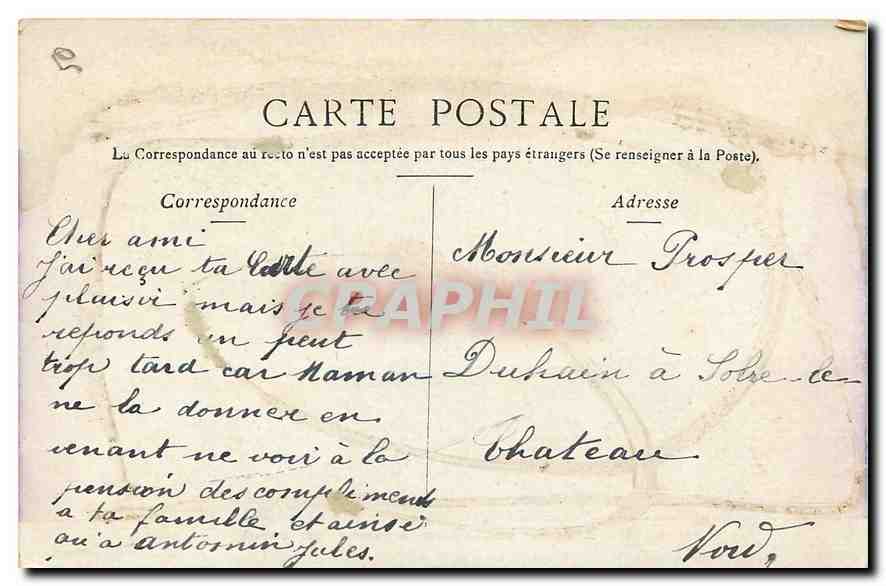 CARTE POSTALE
La Correspondance au recto n'est pas acceptée par tous les pays étrangers (Se renseigner à la Poste).
Correspondance
Cher ami
J'ai reçu ta Carte avec
plaisir mais je te
reponds un peut
trop tard car Maman
ne la donner en
venant ne voir à la
pension des compliments
a ta famille et ainsi
qu'a antonin Jules.
Adresse
Monsieur Prosper
Duhain à Solre-le-
Chateau
Nord,
CPAPHIL